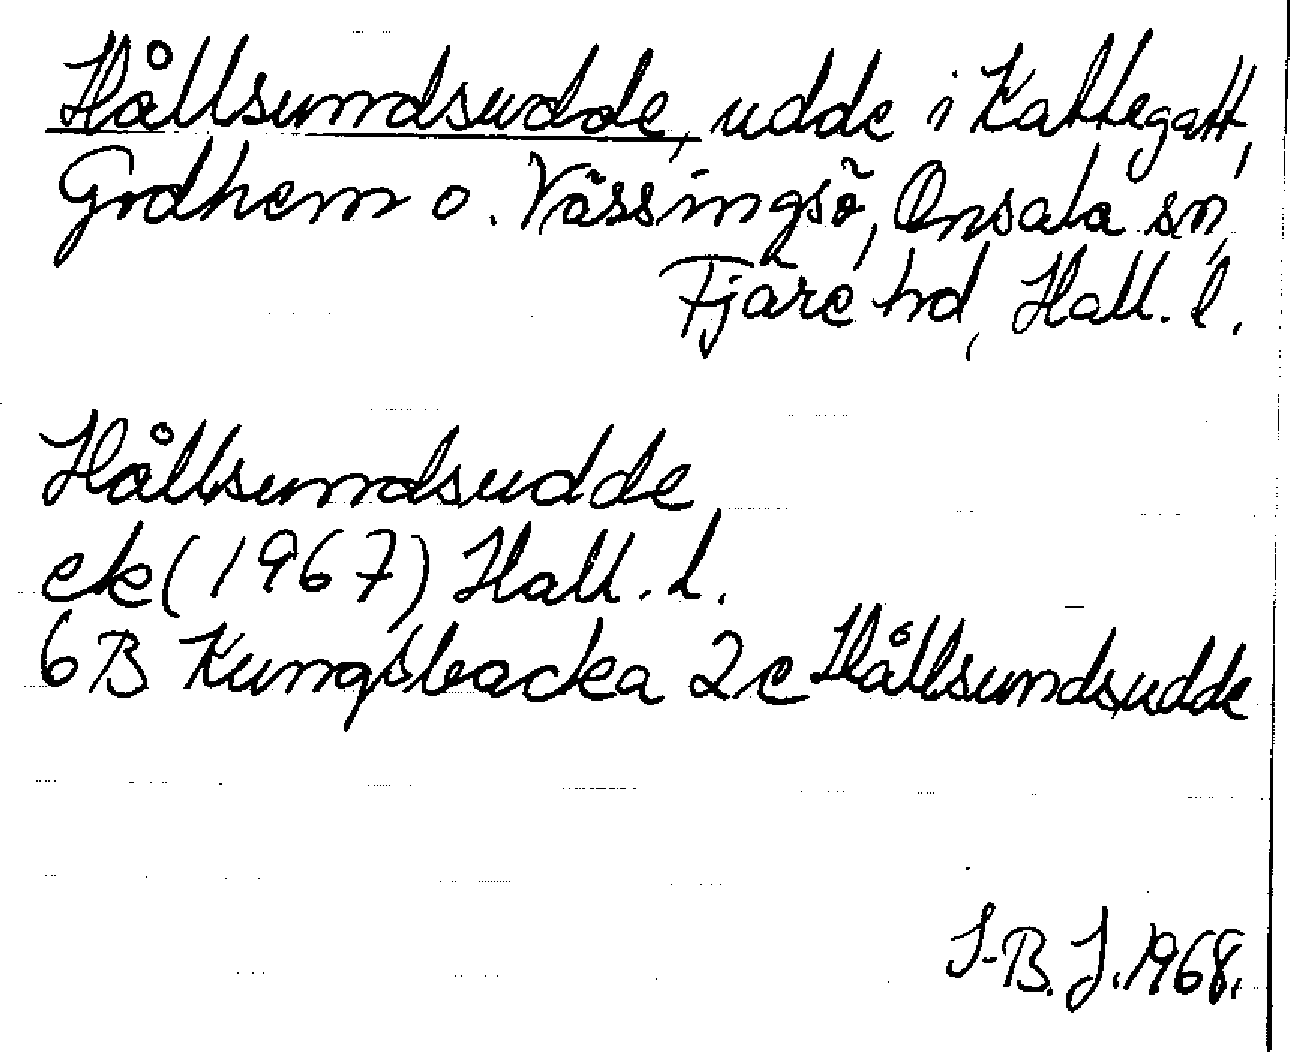 Hållsundsudde, udde i Kattegatt,
Godhem o. Vässingsö, Onsala sn,
Fjäre hd, Hall. l.
Hållsundsudde
ek (1967) Hall. l.
6B Kungsbacka 2c Hållsundsudde
I-B. J. 1968.